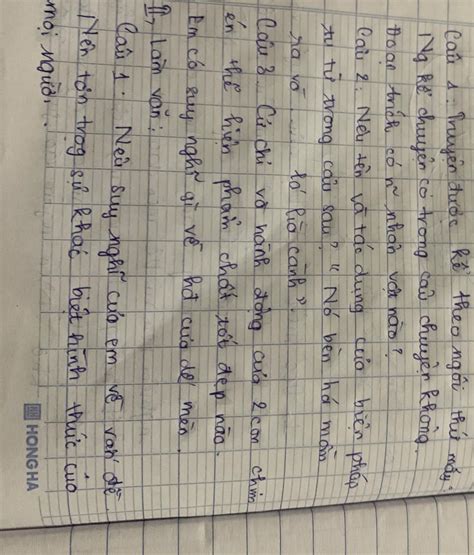 Câu 1. Truyện được kể theo ngôi thứ mấy.
Ng kể chuyện có trong câu chuyện không.
Đoạn trích có n~ nhân vật nào?
Câu 2: Nêu tên và tác dụng của biện pháp
tu từ trong câu sau? "Nó bèn há mồm
ra và ........ tổ lìa cành".
Câu 3. Cử chỉ và hành động của 2 con chim
én thể hiện phẩm chất tốt đẹp nào.
Em có suy nghĩ gì về hđ của dế mèn.
II, Làm văn:
Câu 1. Nêu suy nghĩ của em về vấn đề
Nên tôn trọg sự khác biệt hình thức của
mọi người.
HONG HA